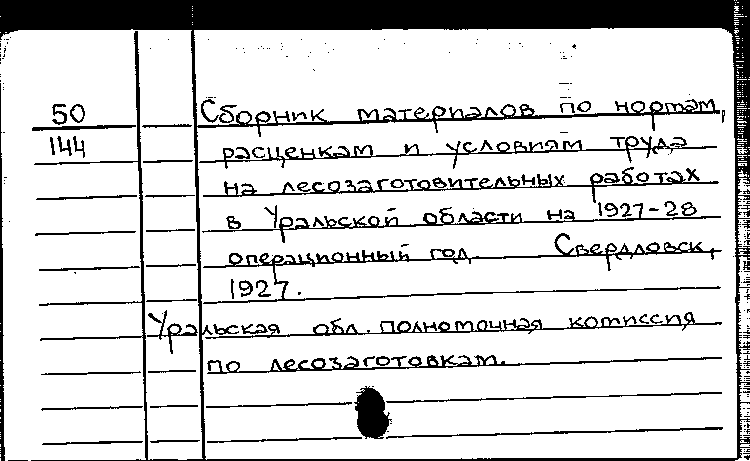 50 Сборник материалов по нормам,
144 расценкам и условиям труда
на лесозаготовительных работах
в Уральской области на 1927-28
операционный год. Свердловск,
1927.
Уральская обл. полномочная комиссия
по лесозаготовкам.